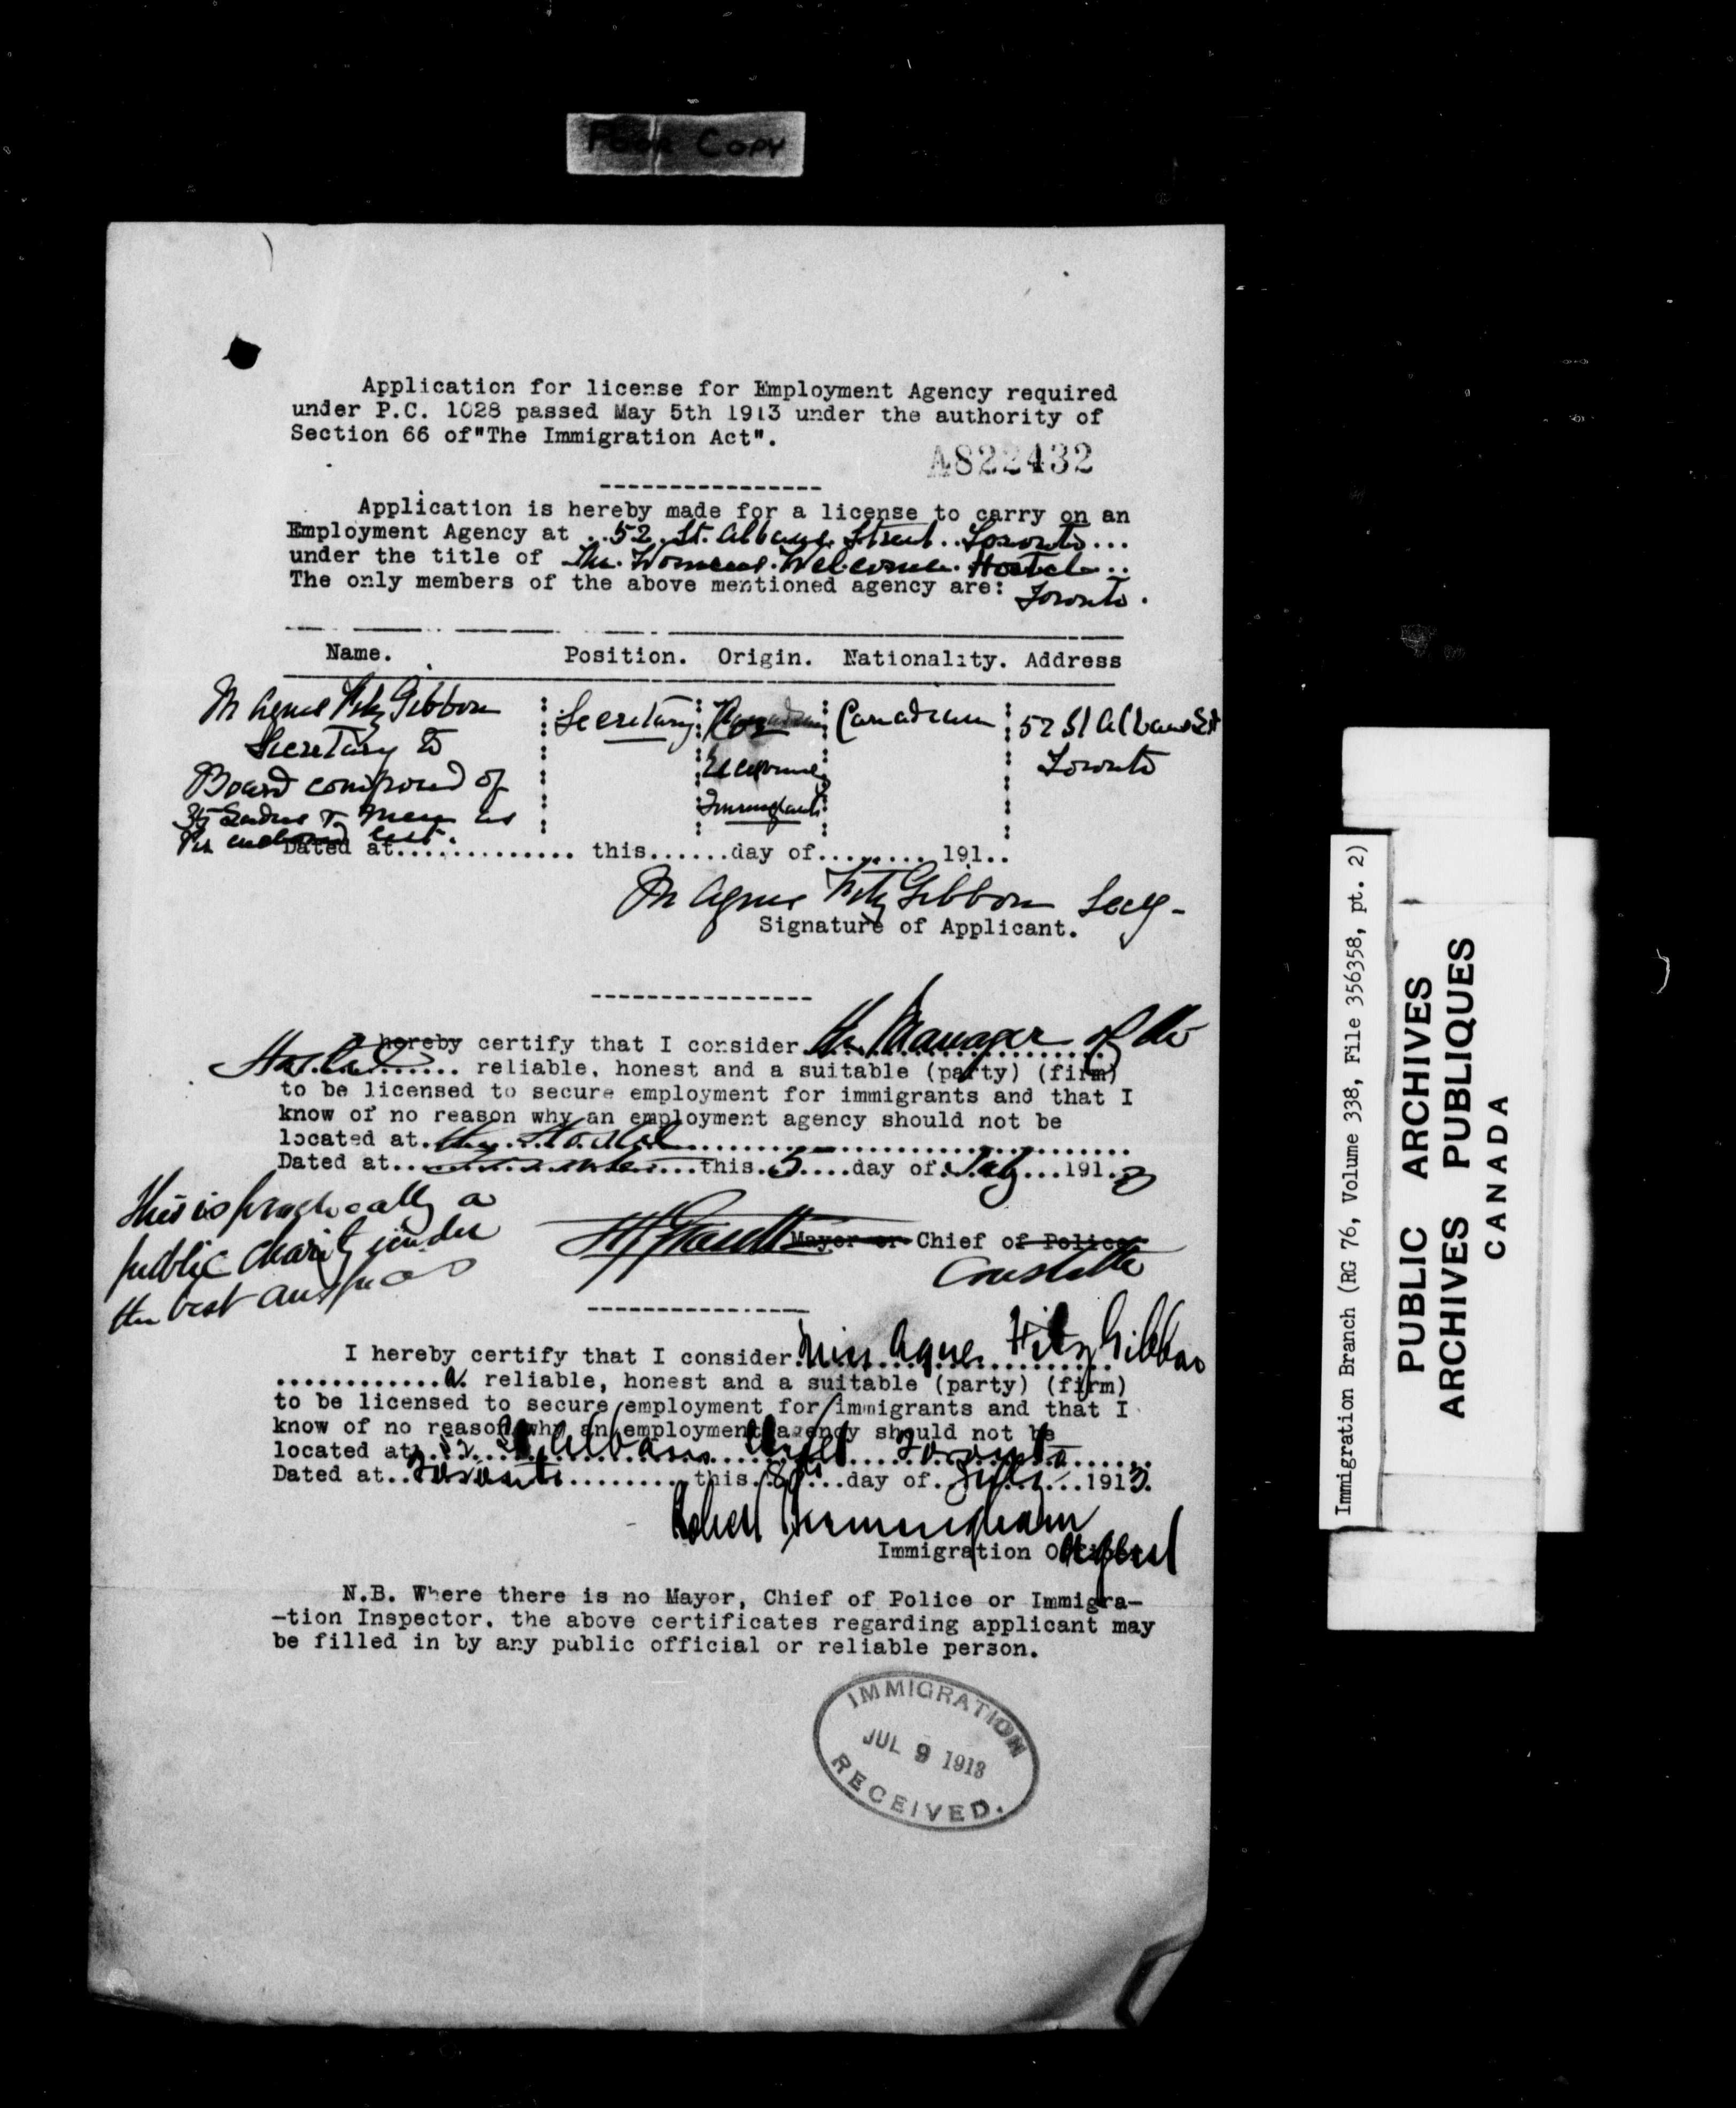 Poor Copy
Application for license for Employment Agency required
under P.C. 1028 passed May 5th 1913 under the authority of
Section 66 of "The Immigration Act".
A822432
Application is hereby made for a license to carry on an
Employment Agency at ..52. St. Albans. Street.. Toronto...
under the title of The. Womens. Welcome. Hostel..
The only members of the above mentioned agency are: Toronto.
Name. Position. Origin. Nationality. Address
M Agnes FitzGibbon Secretary Canadian 52 St Albans St
Secretary to Toronto
Board composed of
Immigrants
Ladies & men as
per enclosed list.
Dated at.............. this......day of........ 191..
M Agnes FitzGibbon Secy-
Signature of Applicant.
I hereby certify that I consider the Manager of the
Hostel...... reliable, honest and a suitable (party) (firm)
to be licensed to secure employment for immigrants and that I
know of no reason why an employment agency should not be
located at. the Hostel
Dated at.. this. 5....day of. July...191.3
This is practically a
public charity under
the best auspices
Mayor or Chief of Police
Constable
I hereby certify that I consider. Miss Agnes FitzGibbon
............a. reliable, honest and a suitable (party) (firm)
to be licensed to secure employment for immigrants and that I
know of no reason why an employment agency should not be
located at. 52. St Albans Street Toronto
Dated at.. Toronto..........this. 8th...day of. July....1913.
Robert Birmingham
Immigration Agent
N.B. Where there is no Mayor, Chief of Police or Immigra-
-tion Inspector. the above certificates regarding applicant may
be filled in by any public official or reliable person.
IMMIGRATION
JUL 9 1913
RECEIVED.
Immigration Branch (RG 76, Volume 338, File 356358, pt. 2)
PUBLIC ARCHIVES
ARCHIVES PUBLIQUES
CANADA